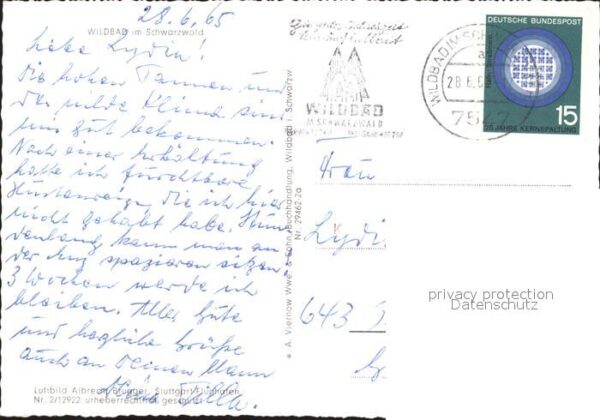 28.6.65
WILDBAD im Schwarzwald
liebe Lydia!
die hohen Tannen und
das milde Klima sind
mir gut bekommen.
Nach einer Erkältung
hatte ich furchtbare
Hustenreize, die ich hier
nicht gehabt habe. Stun-
denlang kann man an
der Enz spazieren sitzen.
3 Wochen werde ich
bleiben. Alles Gute
und herzliche Grüße
auch an Deinen Mann
Luftbild Albrecht Brugger, Stuttgart-Flughafen
Nr. 2/12922 urheberrechtlich
© A. Viernow Wwe. & Sohn, Buchhandlung, Wildbad i. Schwarzw.
Nr. 29462-2a
WILDBAD
IM SCHWARZWALD
WILDBAD IM SCH
28.6.6
7547
DEUTSCHE BUNDESPOST
15
25 JAHRE KERNSPALTUNG
Frau
Lydi
643
privacy protection
Datenschutz